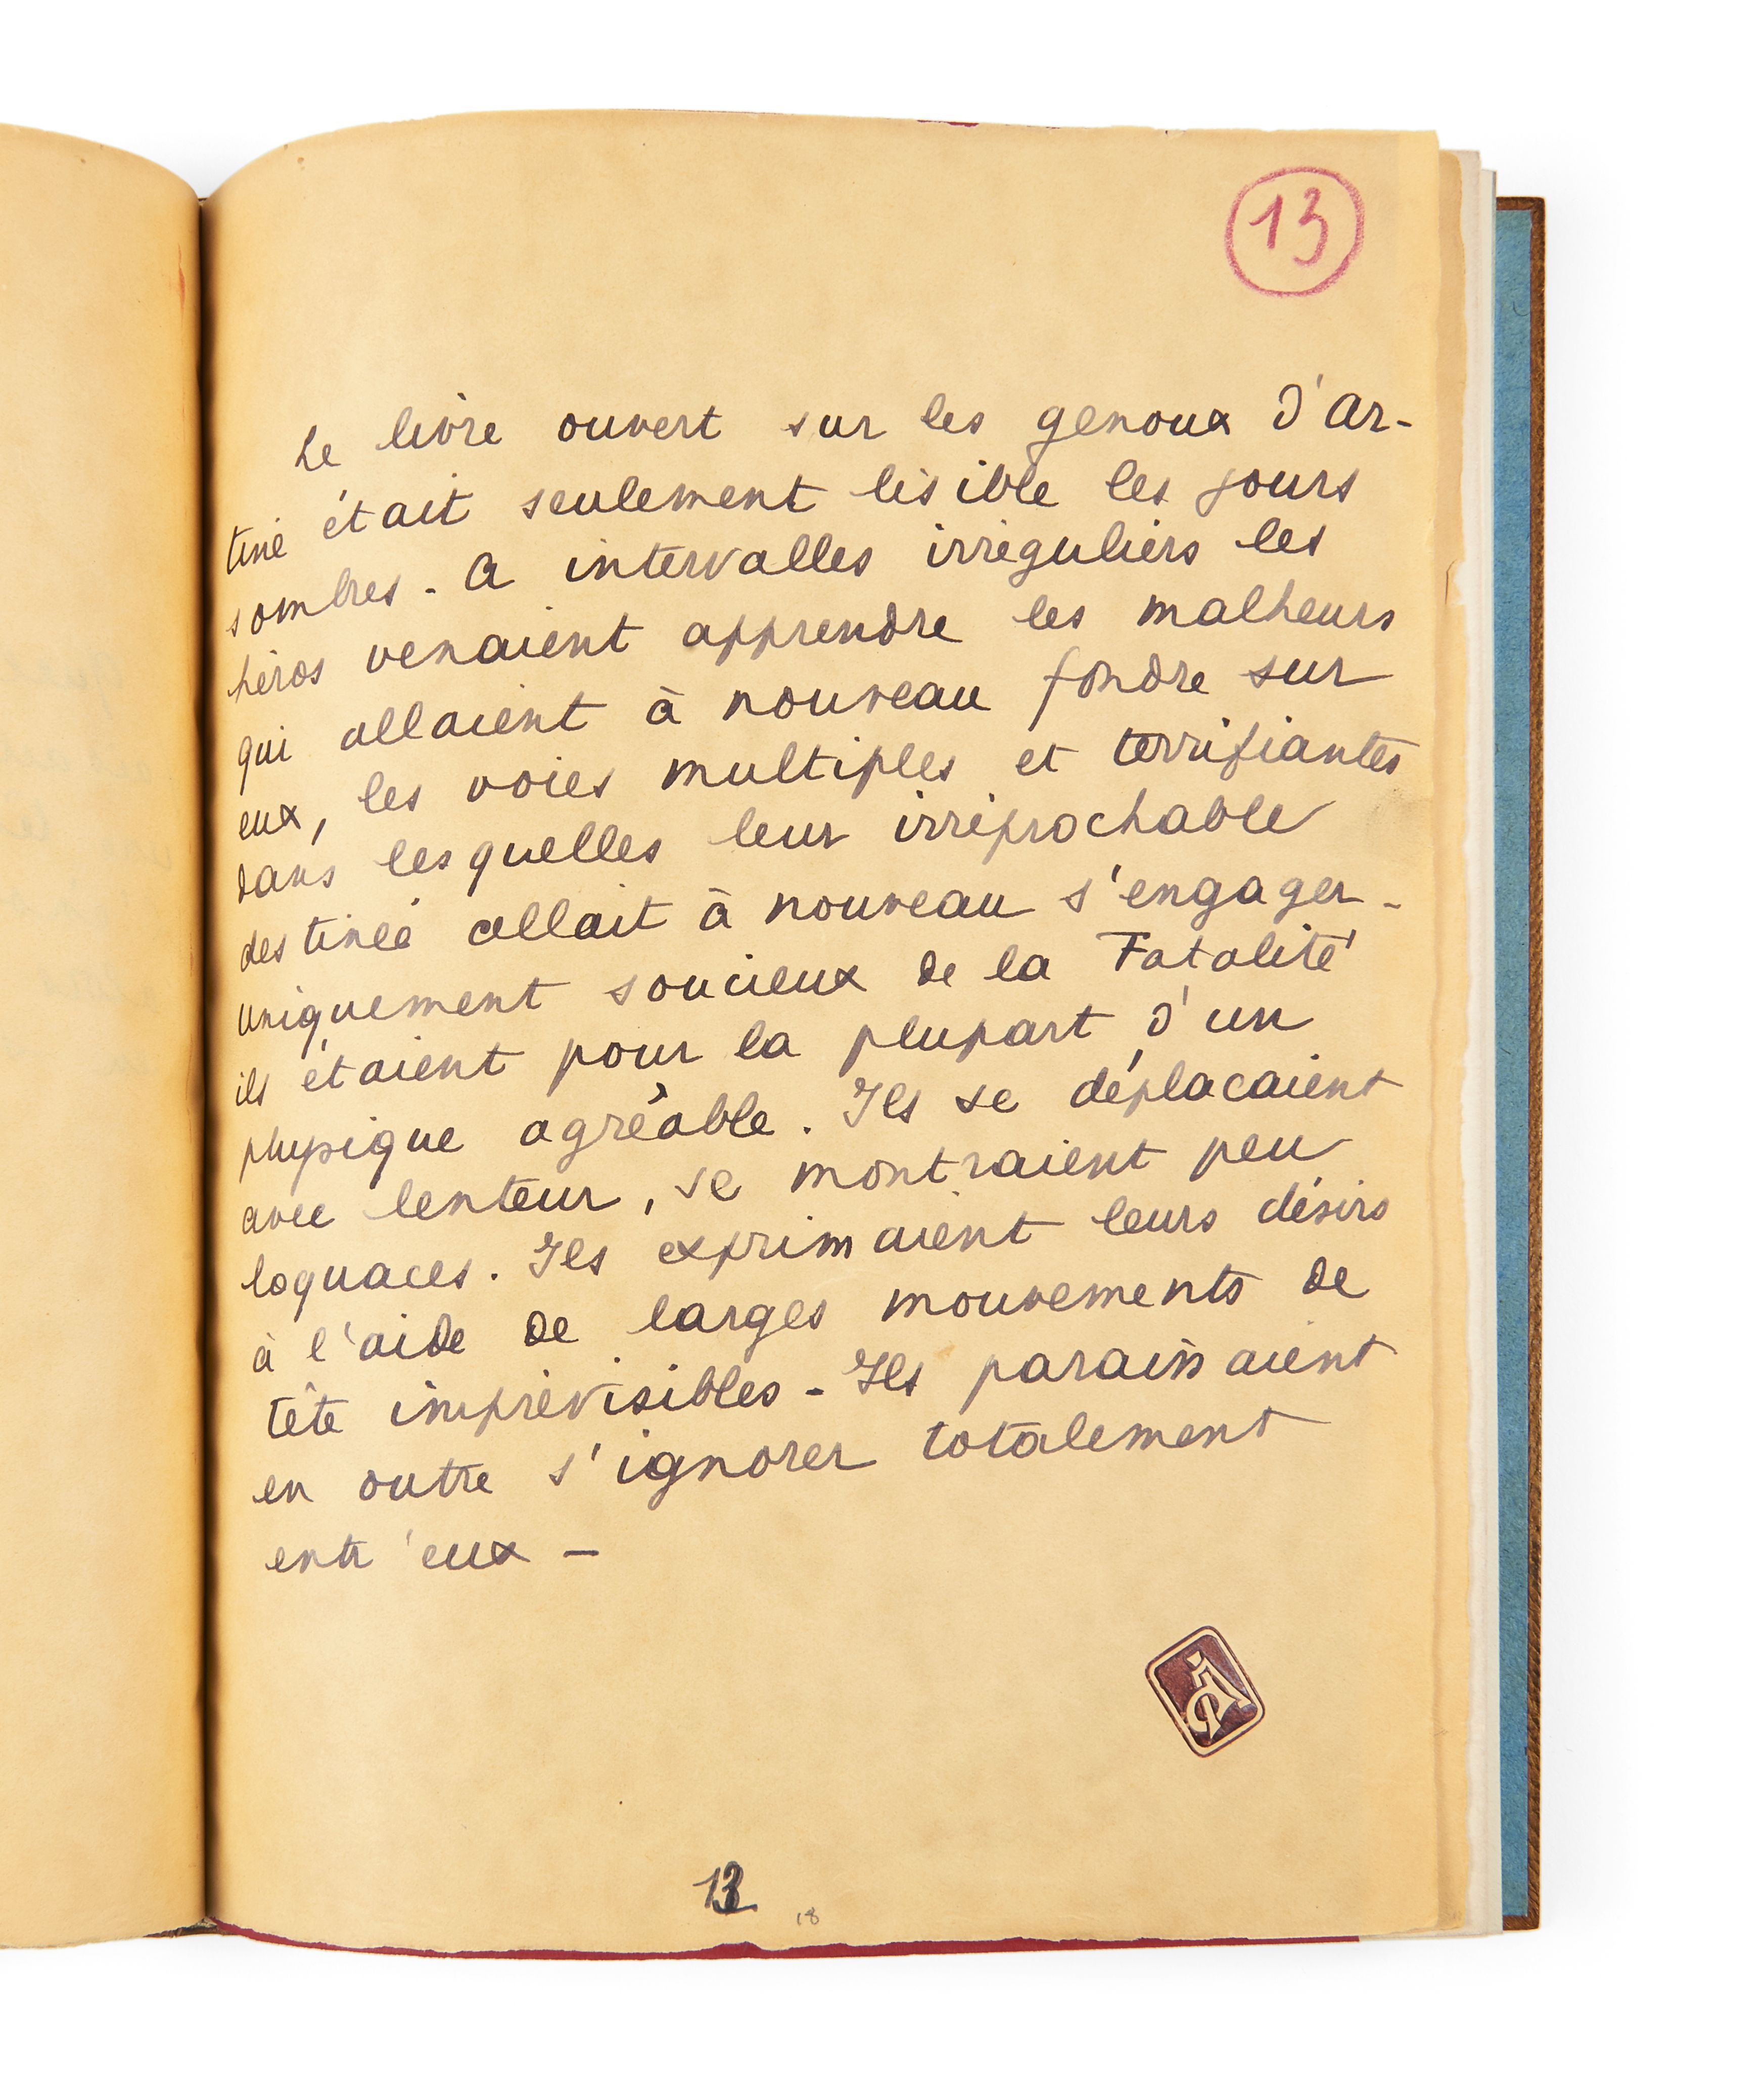 13
Le livre ouvert sur les genoux d'Ar-
tine était seulement lisible les jours
sombres. A intervalles irréguliers les
héros venaient apprendre les malheurs
qui allaient à nouveau fondre sur
eux, les voies multiples et terrifiantes
dans lesquelles leur irréprochable
destinée allait à nouveau s'engager.
uniquement soucieux de la Fatalité
ils étaient pour la plupart d'un
physique agréable. Ils se déplacaient
avec lenteur, se montraient peu
loquaces. Ils exprimaient leurs désirs
à l'aide de larges mouvements de
tête imprévisibles. Ils paraissaient
en outre s'ignorer totalement
entr'eux —
13
18